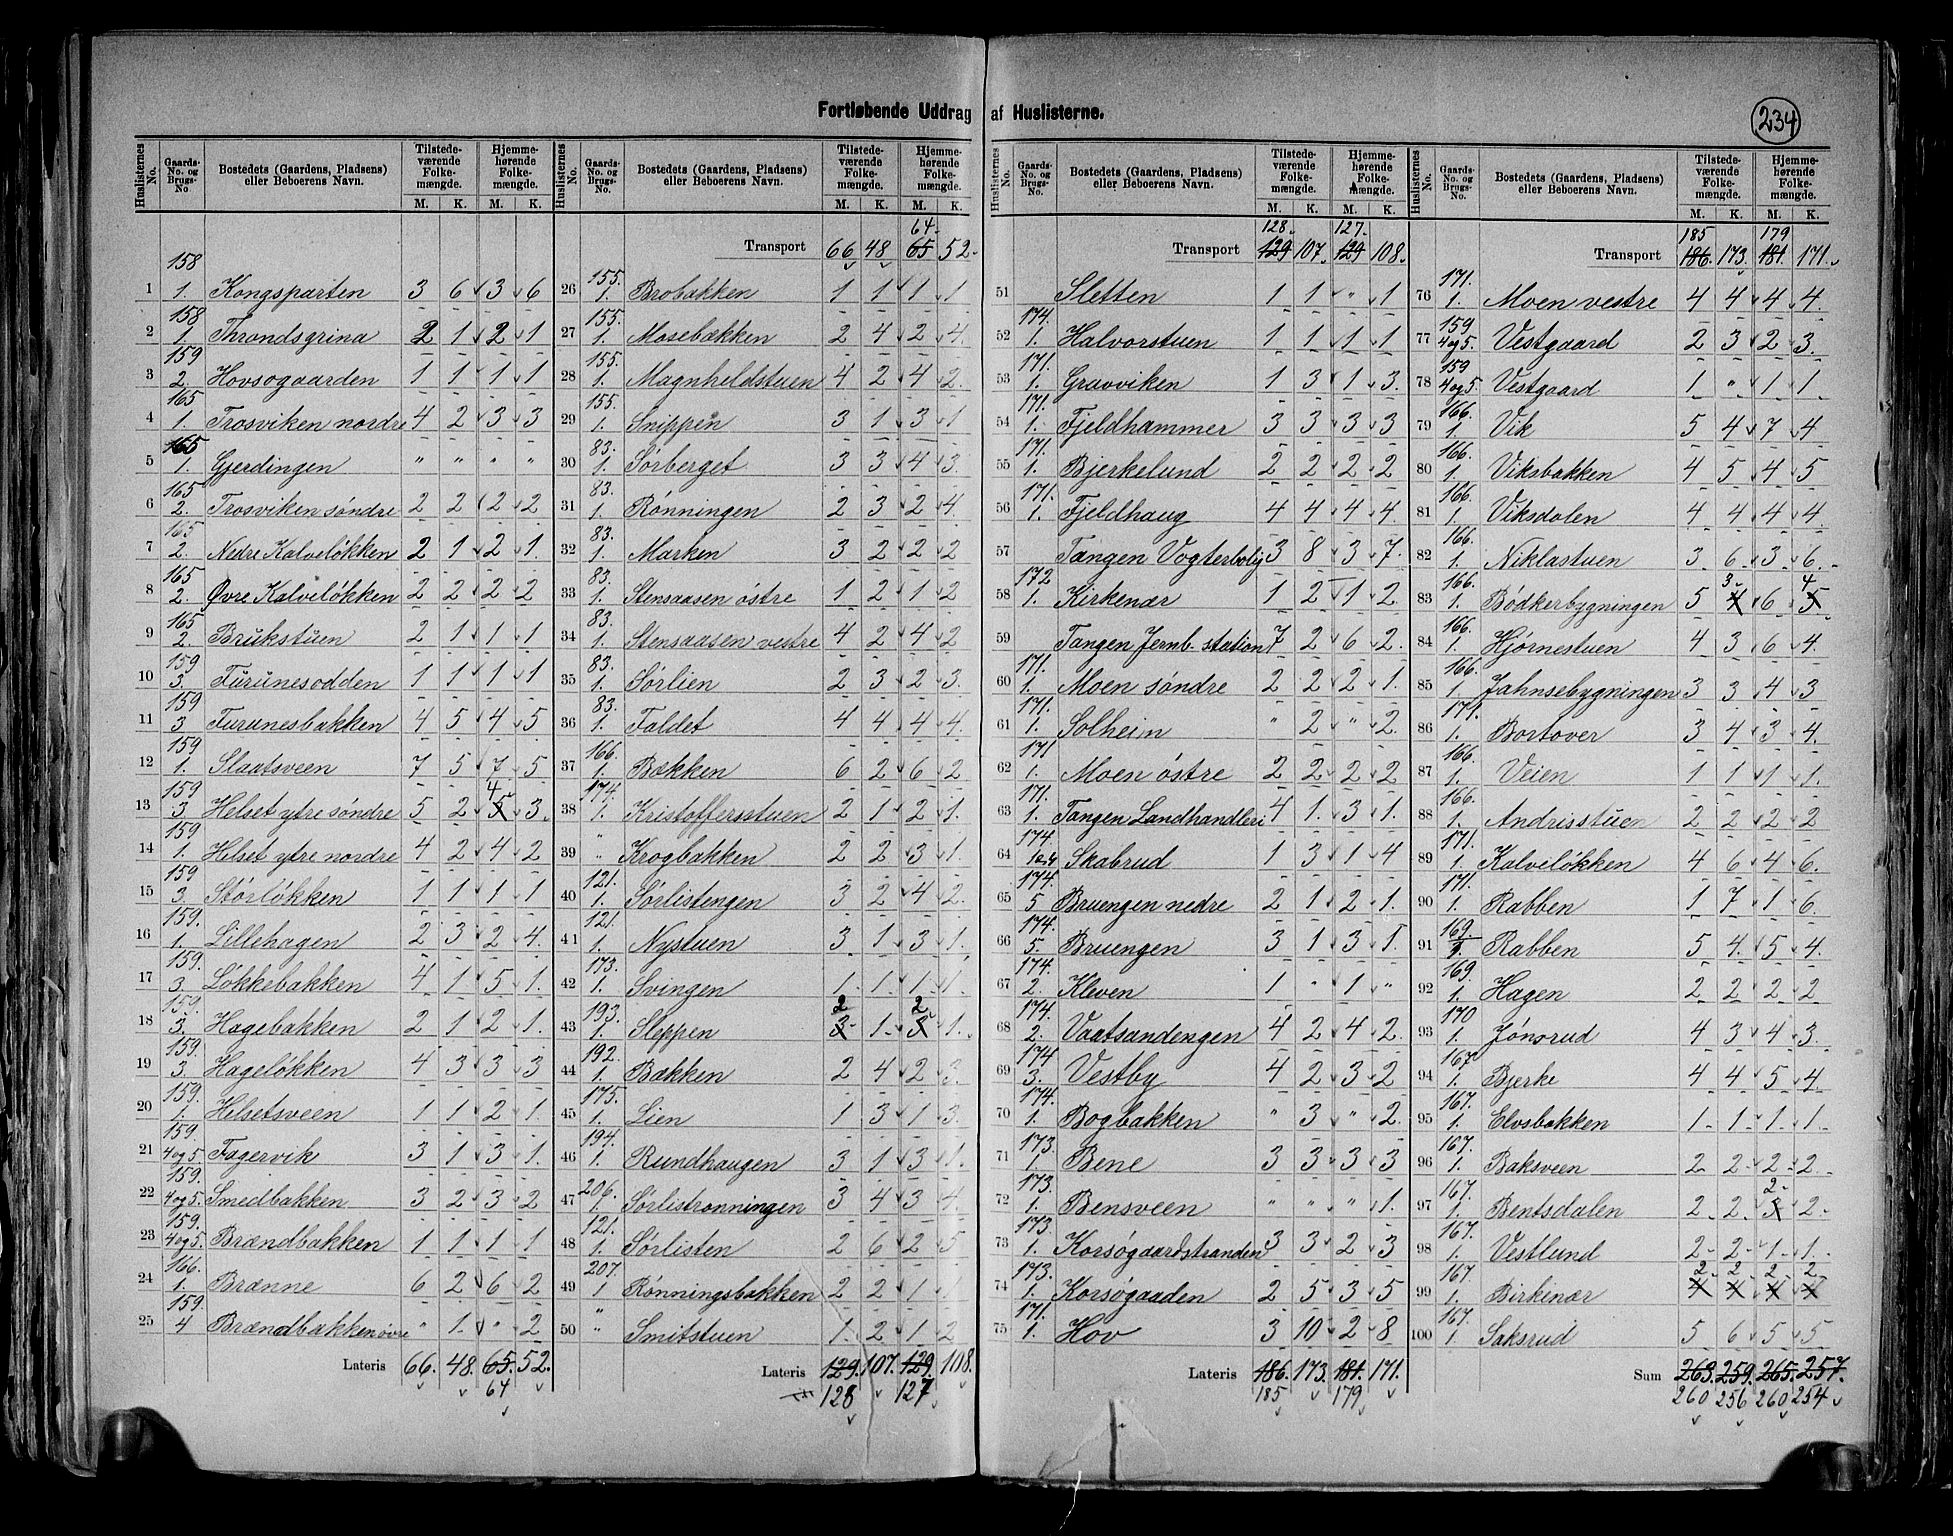 Fortløbende Uddrag af Huslisterne.
234
Huslisternes No. | Gaards-No. og Brugs-No. | Bostedets (Gaardens, Pladsens) eller Beboerens Navn. | Tilstedeværende Folkemængde. M. K. | Hjemmehørende Folkemængde. M. K.
1 | 158 1. | Kongsparten | 3 | 6 | 3 | 6
2 | 158 1. | Throndsgrina | 2 | 1 | 2 | 1
3 | 159 2. | Hovsogaarden | 1 | 1 | 1 | 1
4 | 165 1. | Trosviken nordre | 4 | 2 | 3 | 3
5 | 165 1. | Gjerdingen | " | " | " | "
6 | 165 2. | Trosviken søndre | 2 | 2 | 2 | 2
7 | 165 2. | Nedre Kalveløkken | 2 | 1 | 2 | 1.
8 | 165 2. | Øvre Kalveløkken | 2 | 2 | 2 | 2
9 | 165 2. | Brukstuen | 2 | 1 | 1 | 1
10 | 159 3. | Furunesodden | 1 | 1 | 1 | 1
11 | 159 3 | Furunesbakken | 4 | 5 | 4 | 5
12 | 159 1. | Slaatsveen | 7 | 5 | 7 | 5
13 | 159 3 | Helset ytre søndre | 5 | 2 | 5 4 | 3.
14 | 159 1. | Helset ytre nordre | 4 | 2 | 4 | 2
15 | 159 3. | Størløkken | 1 | 1 | 1 | 1
16 | 159. 1. | Lillehagen | 2 | 3 | 2 | 4.
17 | 159. 3. | Løkkebakken | 4 | 1 | 5 | 1.
18 | 159. 3. | Hagebakken | 2 | 1 | 2 | 1.
19 | 159. 3. | Hageløkken | 4 | 3 | 3 | 3
20 | 159. 1. | Helsetsveen | 1 | 1 | 2 | 1.
21 | 159. 4og5. | Fagervik | 3 | 1 | 3 | 1.
22 | 159. 4og5. | Smedbakken | 3 | 2 | 3 | 2
23 | 159. 4og5. | Brændbakken | 1 | 1 | 1 | 1
24 | 166. 1. | Brænne | 6 | 2 | 6 | 2
25 | 159. 4 | Brændbakken øvre | " | 1. | " | 2
Lateris 66. 48. 65. 52.
64
Huslisternes No. | Gaards-No. og Brugs-No. | Bostedets (Gaardens, Pladsens) eller Beboerens Navn. | Tilstedeværende Folkemængde. M. K. | Hjemmehørende Folkemængde. M. K.
64.
Transport 66 48 65 52.
26 | 155. 1. | Brobakken | 1 | 1 | 1 | 1
27 | 155. 1. | Mosebækken | 2 | 4 | 2 | 4.
28 | 155. 1. | Magnheldstuen | 4 | 2 | 4 | 2.
29 | 155. 1. | Snippen | 3 | 1 | 3 | 1
30 | 83. 1. | Sørberget | 3 | 3 | 4 | 3.
31 | 83. 1. | Rønningen | 2 | 3 | 2 | 4.
32 | 83. 1. | Marken | 3 | 2 | 2 | 2
33 | 83. 1. | Stensaasen østre | 1 | 2 | 1 | 2
34 | 83. 1. | Stensaasen vestre | 4 | 2 | 4 | 2
35 | 83. 1. | Sørlien | 2 | 3 | 2 | 3.
36 | 83. 1. | Faldet | 4 | 4 | 4 | 4
37 | 166. 1. | Bækken | 6 | 2 | 6 | 2
38 | 174. 1. | Kristoffersstuen | 2 | 1 | 2 | 1.
39 | " | Krogbakken | 2 | 2 | 3 | 1.
40 | 121. 1. | Sørlistengen | 3 | 2 | 4 | 2
41 | 121. 1. | Nystuen | 3 | 1 | 3 | 1.
42 | 173. 1. | Svingen | 1 | 1 | 1 | 1
43 | 193. 1. | Sleppen | 3 2 | 1 | 3 2 | 1.
44 | 192. 1. | Bakken | 2 | 4 | 2 | 3.
45 | 175. 1. | Lien | 1 | 3 | 1 | 3
46 | 194. 1. | Rundhaugen | 3 | 1 | 3 | 1.
47 | 206. 1. | Sørlistrønningen | 3 | 4 | 3 | 4
48 | 121. 1. | Sørlisten | 2 | 6 | 2 | 5
49 | 207. 1 | Rønningsbakken | 2 | 2 | 1 | 1
50 | " | Smitstuen | 1. | 2 | 1 | 2
Lateris 129. 107. 129. 108.
128 127
Huslisternes No. | Gaards-No. og Brugs-No. | Bostedets (Gaardens, Pladsens) eller Beboerens Navn. | Tilstedeværende Folkemængde. M. K. | Hjemmehørende Folkemængde. M. K.
128. 127.
Transport 129 107. 129 108.
51 | Sletten | 1 | 1 | " | 1
52 | 174. 1. | Halvorstuen | 1 | 1 | 1 | 1
53 | 171. 1. | Gravviken | 1 | 3 | 1 | 3.
54 | 171. 1. | Fjeldhammer | 3 | 3 | 3 | 3
55 | 171. 1. | Bjerkelund | 2 | 2 | 2 | 2
56 | 171. 1. | Fjeldhaug | 4 | 4 | 4 | 4.
57 | Tangen Vogterbolig | 3 | 8 | 3 | 7.
58 | 172 1. | Kirkenær | 1 | 2 | 1 | 2.
59 | Tangen Jernb. station | 7 | 2 | 6 | 2.
60 | 171. 1. | Moen søndre | 2 | 2 | 2 | 1.
61 | 171. 1. | Solheim | " | 2 | " | 2.
62 | 171 1. | Moen østre | 2 | 2 | 2 | 2
63 | 171. 1. | Tangen Landhandleri | 4 | 1. | 3 | 1.
64 | 174. | Skabrud | 1 | 3 | 1 | 4
65 | 174. 5 | Bruengen nedre | 2 | 1 | 2 | 1.
66 | 174. 5. | Bruengen | 3 | 1 | 3 | 1.
67 | 174. 2. | Kleven | 1 | " | 1 | "
68 | 174. 2. | Vaatsandengen | 4 | 2 | 4 | 2.
69 | 174 3. | Vestby | 4 | 2 | 3 | 2
70 | 174. 1. | Bogbakken | " | 3 | " | 2.
71 | 173. 1. | Bene | 3 | 3 | 3 | 3
72 | 173. 1. | Bensveen | " | " | " | 1.
73 | 173. 1. | Korsøgaardstranden | 3 | 3 | 2 | 3
74 | 173. 1. | Korsøgaarden | 2 | 5 | 3 | 5
75 | 171. 1. | Hov | 3 | 10 | 2 | 8
Lateris 186. 173. 181. 171.
185 179
Huslisternes No. | Gaards-No. og Brugs-No. | Bostedets (Gaardens, Pladsens) eller Beboerens Navn. | Tilstedeværende Folkemængde. M. K. | Hjemmehørende Folkemængde. M. K.
185 179
Transport 186. 173. 181. 171.
76 | 171. 1. | Moen vestre | 4 | 4 | 4 | 4.
77 | 159 4og5. | Vestgaard | 2 | 3 | 2 | 3.
78 | 159 4og5. | Vestgaard | 1 | " | 1 | 1
79 | 166. 1. | Vik | 5 | 4 | 7 | 4
80 | 166. 1. | Viksbakken | 4 | 5 | 4 | 5
81 | 166. 1. | Viksdalen | 4 | 4 | 4 | 4.
82 | 166. 1. | Niklastuen | 3 | 6 | 3 | 6.
83 | 166. 1. | Bødkerbygningen | 5 | 4 3 | 6 | 5 4
84 | 166. 1. | Hjørnestuen | 4 | 3 | 6 | 4.
85 | 166. 1. | Jahnsebygningen | 3 | 3 | 4 | 3
86 | 171. 1. | Bortover | 3 | 4 | 3 | 4.
87 | 166. 1. | Veien | 1 | 1 | 1 | 1.
88 | 166. 1. | Andrisstuen | 2 | 2 | 2 | 2
89 | 171. 1. | Kalveløkken | 4 | 6 | 4 | 6.
90 | 171. 1. | Rabben | 1 | 7 | 1 | 6.
91 | 169. | Rabben | 5 | 4. | 5 | 4.
92 | 169. 1. | Hagen | 2 | 2 | 2 | 2
93 | 170 1. | Jønsrud | 4 | 3 | 4 | 3.
94 | 167. 1. | Bjerke | 4 | 4 | 5 | 4
95 | 167. 1. | Elvsbakken | 1 | 1 | 1 | 1
96 | 167. 1. | Baksveen | 2 | 2 | 2 | 2.
97 | 167. 1. | Bentsdalen | 2 | 2 | 3 2 | 2.
98 | 167. 1. | Vestlund | 2 | 2 | 1 | 1.
99 | 167. 1. | Birkenær | 4 2 | 4 2 | 4 2 | 4 2
100 | 167. 1. | Saksrud | 5 | 6 | 5 | 5
Sum 263. 259. 265. 257.
260 256 260 254